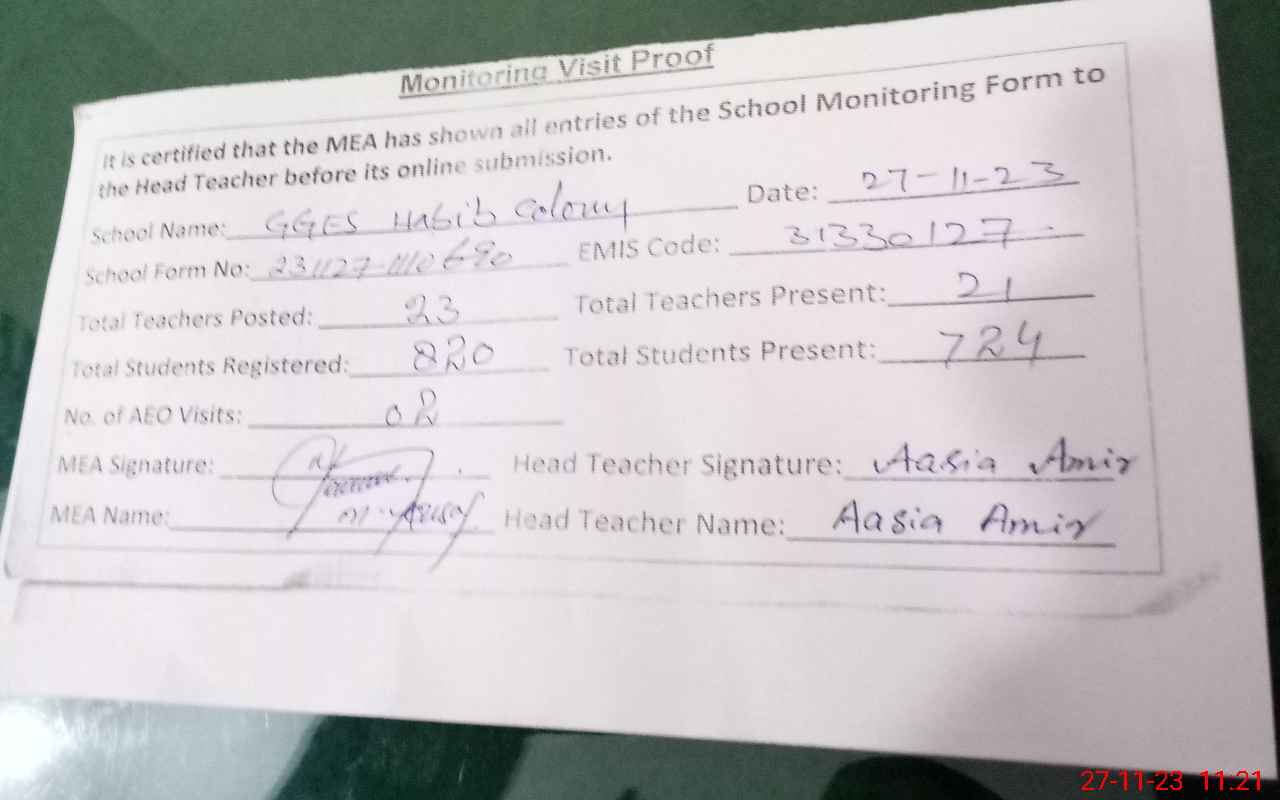 Monitoring Visit Proof
It is certified that the MEA has shown all entries of the School Monitoring Form to
the Head Teacher before its online submission.
School Name: GGES Habib Colony Date: 27-11-23
School Form No: 231127-1110690 EMIS Code: 31330127
Total Teachers Posted: 23 Total Teachers Present: 21
Total Students Registered: 820 Total Students Present: 724
No. of AEO Visits: 02
MEA Signature: Head Teacher Signature: Aasia Amir
MEA Name: Head Teacher Name: Aasia Amir
27-11-23 11:21